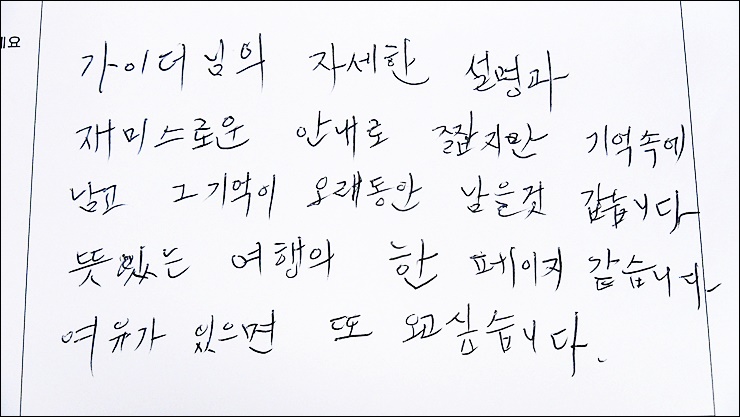 네요
가이더님의 자세한 설명과
재미스로운 안내로 짧지만 기억속에
남고 그기억이 오래동안 남을것 갑습니다
뜻있는 여행의 한 페이지 같습니다.
여유가 있으면 또 오고싶습니다.